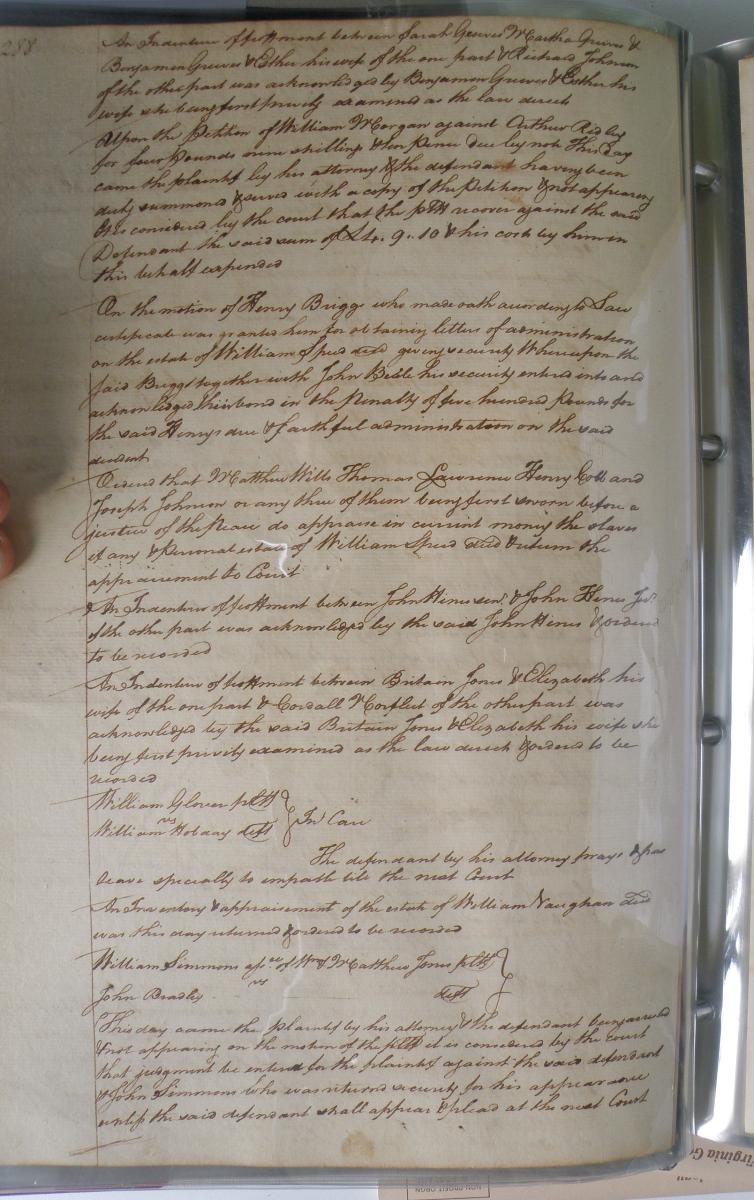 288
An Indenture of feoffment between Sarah Greeves Martha Greeves &
Benjamen Greeves & Esther his wife of the one part & Richard Johnson
of the other part was acknowledged by Benjamen Greeves & Esther his
wife she being first privily examined as the law directs
Upon the Petition of William Morgan against Arthur Ridley
for four Pounds nine shillings & ten Pence due by note This day
came the plaintif by his attorney & the defendant having been
duly summoned & served with a copy of the Petition & not appearing
It is considered by the court that the pltff recover against the said
Defendant the said sum of £4. 9. 10 & his costs by him in
this behalf expended
On the motion of Henry Briggs who made oath according to Law
certificate was granted him for obtaining letters of administration
on the estate of William Speed decd giving security Whereupon the
said Briggs together with John Bell his security entered into and
acknowledged their bond in the Penalty of five hundred Pounds for
the said Henrys due & faithful administration on the said
decedent
Ordered that Matthew Wills Thomas Lawrence Henry Cobb and
Joseph Johnson or any three of them being first sworn before a
justice of the Peace do appraise in current money the slaves
if any & Personal estate of William Speed decd & return the
appraisement to Court
An Indenture of feoffment between John Hines senr. & John Hines Jur.
of the other part was acknowledged by the said John Hines & ordered
to be recorded
An Indenture of feoffment between Britain Jones & Elizabeth his
wife of the one part & Cordall Norfleet of the other part was
acknowledged by the said Britain Jones & Elizabeth his wife she
being first privily examined as the law directs & ordered to be
recorded
William Glover pltff
vs
William Hobday deft
In Case
The defendant by his attorney prays & has
leave specially to imparle till the next Court
An Inventory & appraisement of the estate of William Vaughan decd
was this day returned & ordered to be recorded
William Simmons asse of Wm & Matthew Jones pltff
vs
John Bradley deft
This day came the plaintif by his attorney & the defendant being arrested
& not appearing on the motion of the pltff it is considered by the court
that judgment be entered for the plaintif against the said defendant
& John Simmons who was returned security for his appearance
unless the said defendant shall appear & plead at the next Court